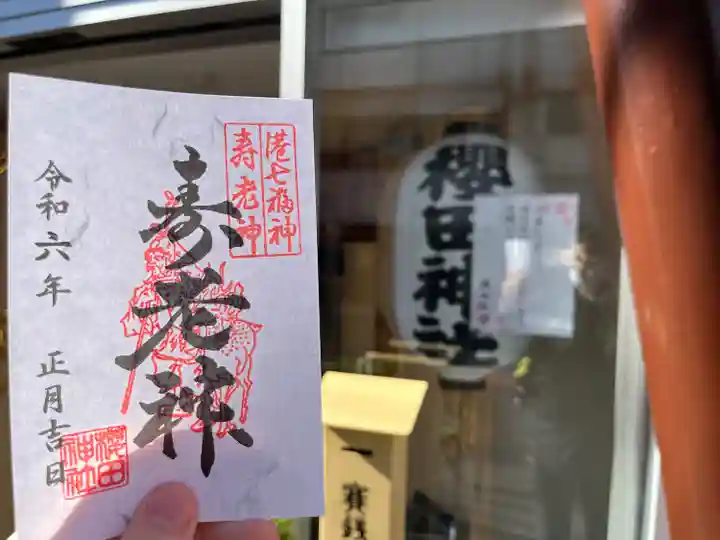 港七福神
寿老神
寿老神
令和六年 正月吉日
櫻田
神社
櫻田神社
一
賽銭